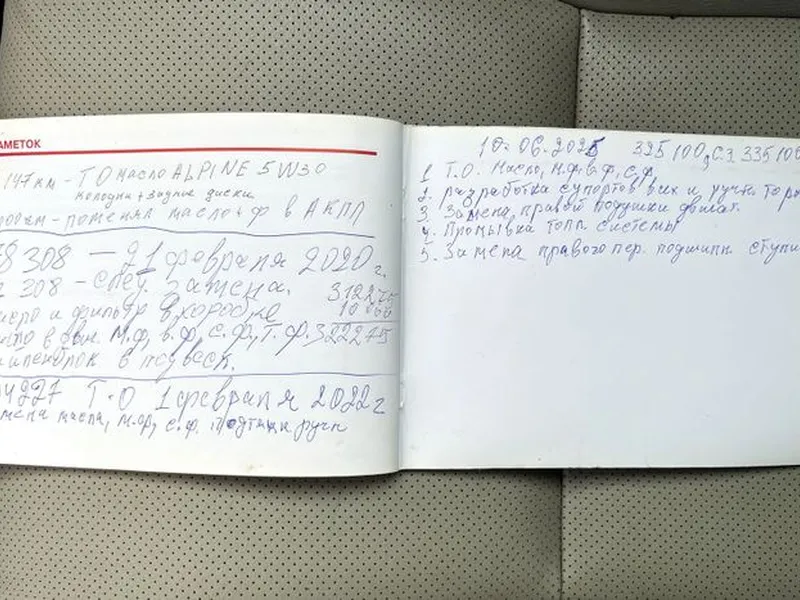 АМЕТОК
147 км - ТО масло ALPINE 5W30
колодки + задние диски
00 км - поменял масло + ф в АКПП
8 308 — 21 февраля 2020 г.
308 - след. замена. 312275
и фильтр в коробке 10 000
в двиг. М.ф, в.ф, с.ф, т.ф. 322275
в подвеск.
4227 Т.О 1 февраля 2022 г
мена масла, м.ф, с.ф. подтяжк ручн
10.06.202 325 100, С.З 335 100
1 Т.О. Масло, М.ф, в.ф, с.ф,
2. разработка супортов всех и ручн. то
3 Замена правой подушки двигат.
4. Промывка топл. системы
5. Замена правого пер. подшипн. ступи